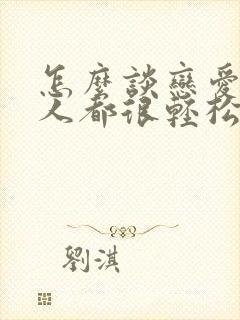 怎麼談戀愛
人都很輕松
劉淇